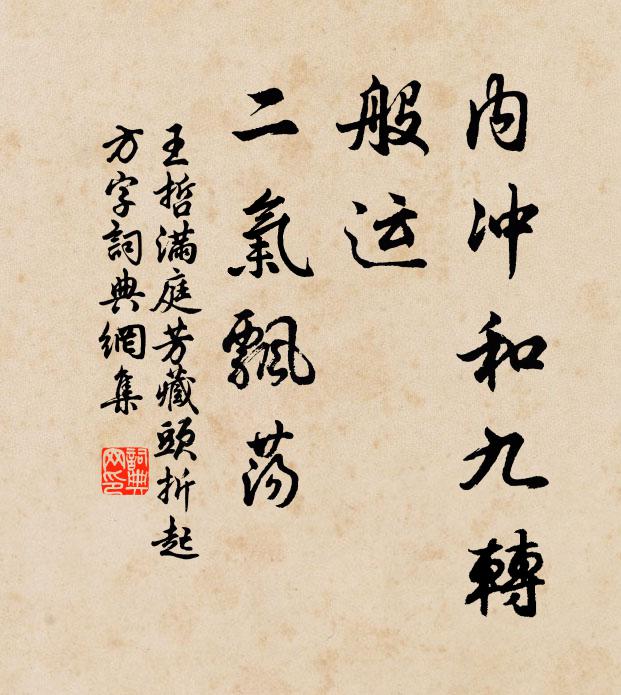 内冲和九轉
般运
二氣飄荡
王哲满庭芳藏頭折起
方字詞典網集
詞典
网印